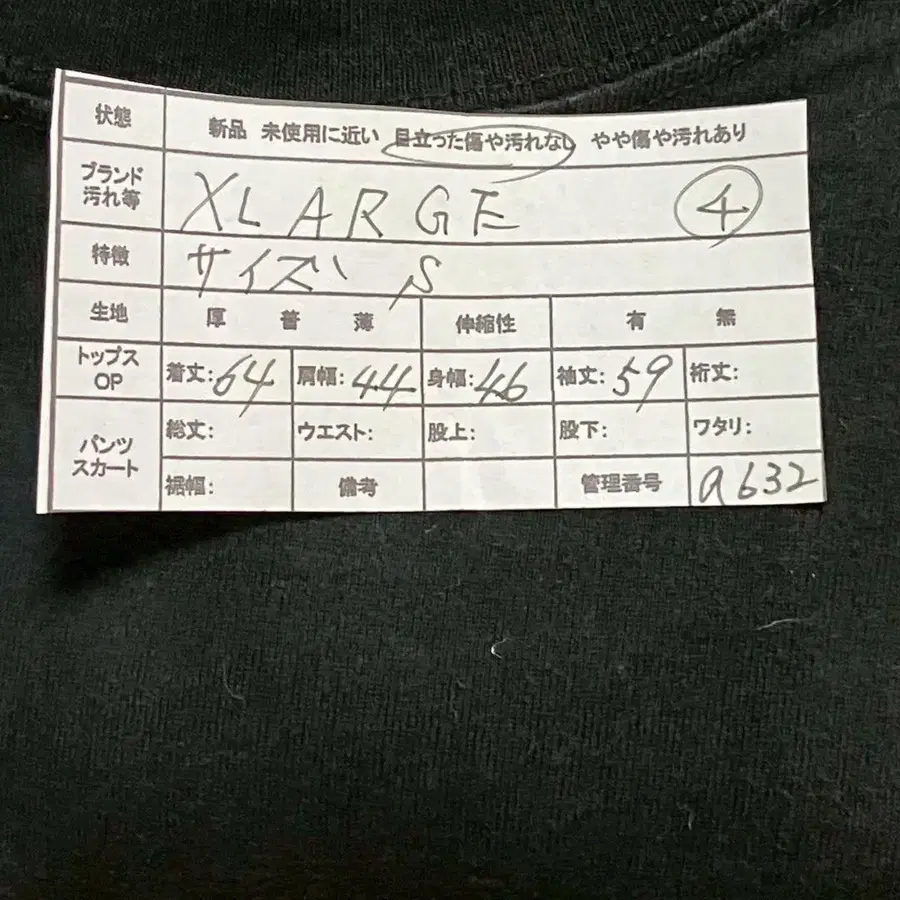 状態 新品 未使用に近い 目立った傷や汚れなし やや傷や汚れあり
ブランド
汚れ等 XLARGE ④
特徴 サイズ S
生地 厚 普 薄 伸縮性 有 無
トップス
OP 着丈:64 肩幅:44 身幅:46 袖丈:59 裄丈:
パンツ
スカート 総丈: ウエスト: 股上: 股下: ワタリ:
裾幅: 備考 管理番号 a632